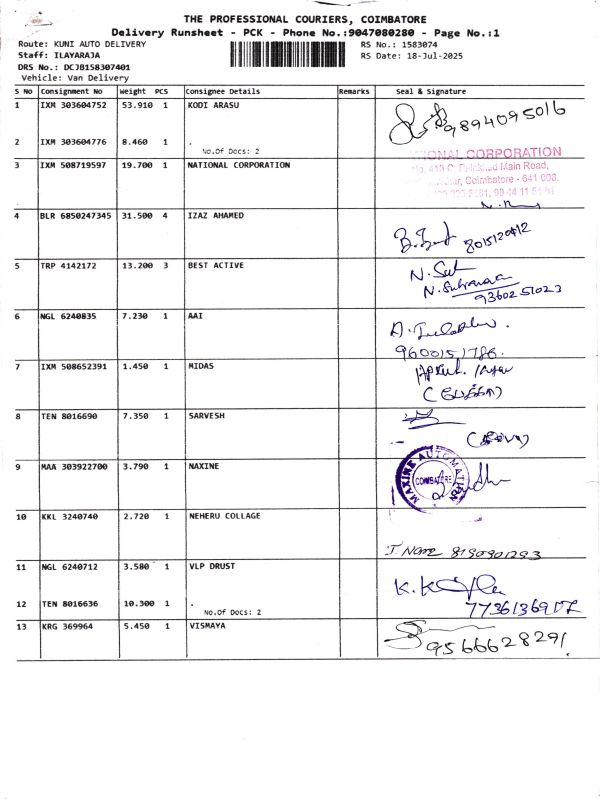 THE PROFESSIONAL COURIERS, COIMBATORE
Delivery Runsheet - PCK - Phone No.:9047080280 - Page No.:1
Route: KUNI AUTO DELIVERY RS No.: 1583074
Staff: ILAYARAJA RS Date: 18-Jul-2025
DRS No.: DCJB158307401
Vehicle: Van Delivery
S NO Consignment No Weight PCS Consignee Details Remarks Seal & Signature
1 IXM 303604752 53.910 1 KODI ARASU 9894095016
2 IXM 303604776 8.460 1 .
No.Of Docs: 2
3 IXM 508719597 19.700 1 NATIONAL CORPORATION
IONAL CORPORATION
Main Road,
Coimbatore - 641 008.
4 BLR 6850247345 31.500 4 IZAZ AHAMED
5 TRP 4142172 13.200 3 BEST ACTIVE
9360251023
6 NGL 6240835 7.230 1 AAI
9600151786.
7 IXM 508652391 1.450 1 MIDAS
8 TEN 8016690 7.350 1 SARVESH
9 MAA 303922700 3.790 1 NAXINE
MAXINE AUTOMATION
COIMBATORE
10 KKL 3240740 2.720 1 NEHERU COLLAGE
8190901293
11 NGL 6240712 3.580 1 VLP DRUST
12 TEN 8016636 10.300 1 .
No.Of Docs: 2
13 KRG 369964 5.450 1 VISMAYA
9566628291